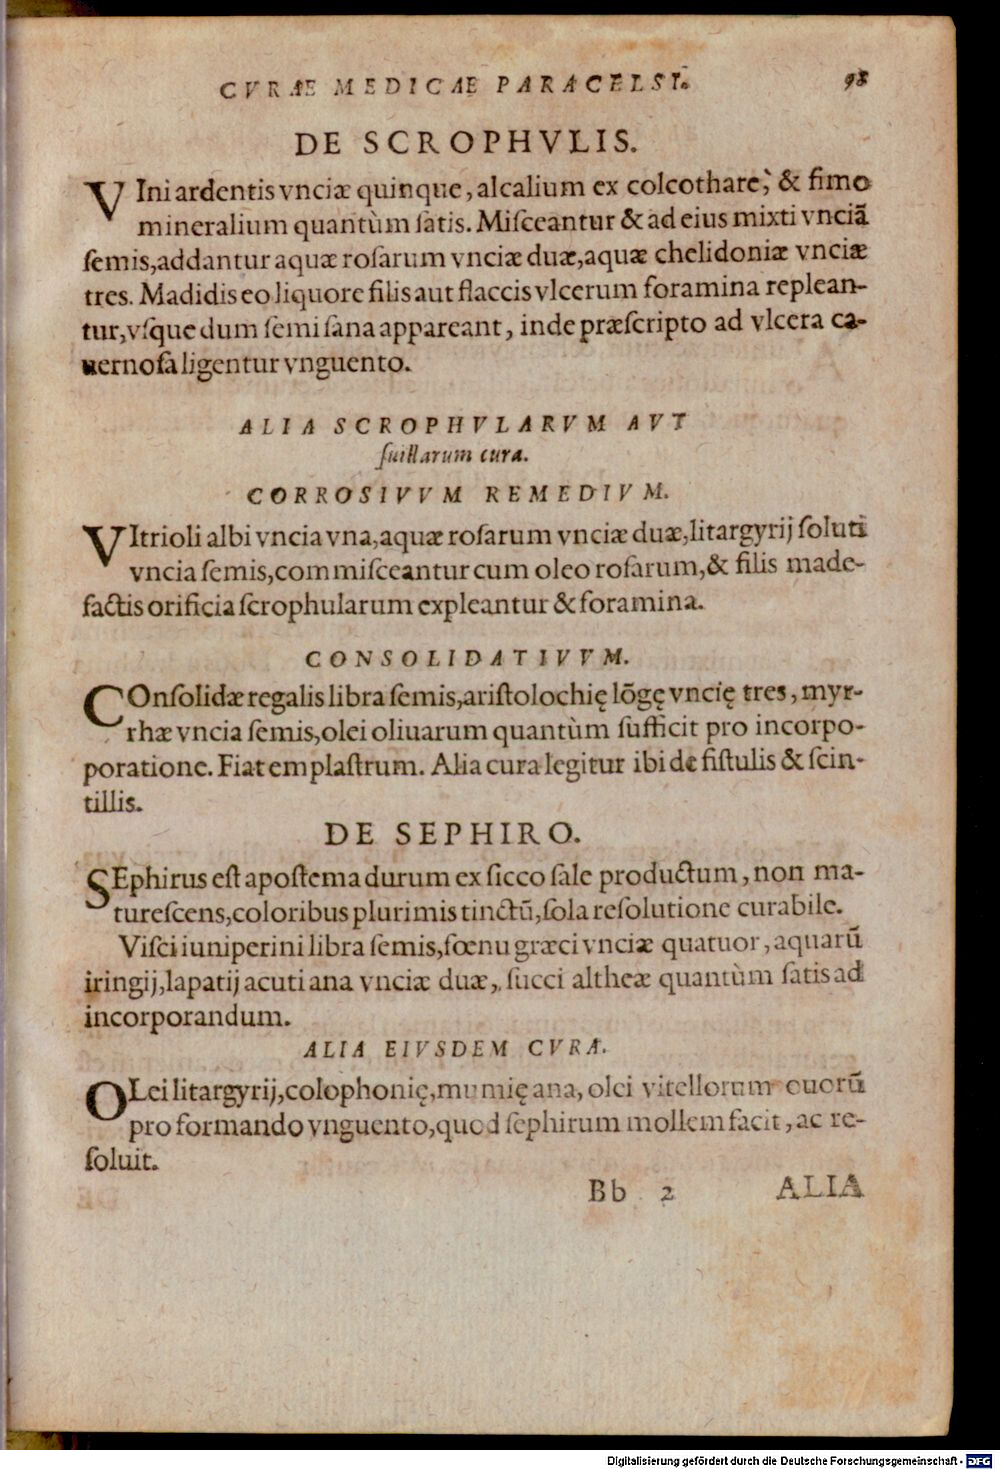 CVRÆ MEDICÆ PARACELSI. 98
DE SCROPHVLIS.
VIni ardentis vnciæ quinque, alcalium ex colcothare, & fimo
mineralium quantùm ſatis. Miſceantur & ad eius mixti vnciã
ſemis, addantur aquæ roſarum vnciæ duæ, aquæ chelidoniæ vnciæ
tres. Madidis eo liquore filis aut flaccis vlcerum foramina replean-
tur, vſque dum ſemi ſana appareant, inde præſcripto ad vlcera ca-
uernoſa ligentur vnguento.
ALIA SCROPHVLARVM AVT
ſuillarum cura.
CORROSIVVM REMEDIVM.
VItrioli albi vncia vna, aquæ roſarum vnciæ duæ, litargyrij ſoluti
vncia ſemis, commiſceantur cum oleo roſarum, & filis made-
factis orificia ſcrophularum expleantur & foramina.
CONSOLIDATIVVM.
COnſolidæ regalis libra ſemis, ariſtolochię lõgę vncię tres, myr-
rhæ vncia ſemis, olei oliuarum quantùm ſufficit pro incorpo-
poratione. Fiat emplaſtrum. Alia cura legitur ibi de fiſtulis & ſcin-
tillis.
DE SEPHIRO.
SEphirus eſt apoſtema durum ex ſicco ſale productum, non ma-
tureſcens, coloribus plurimis tinctũ, ſola reſolutione curabile.
Viſci iuniperini libra ſemis, fœnu græci vnciæ quatuor, aquarũ
iringij, lapatij acuti ana vnciæ duæ, ſucci altheæ quantùm ſatis ad
incorporandum.
ALIA EIVSDEM CVRA.
OLei litargyrij, colophonię, mumię ana, olei vitellorum ouorũ
pro formando vnguento, quod ſephirum mollem facit, ac re-
ſoluit.
Bb 2 ALIA
Digitalisierung gefördert durch die Deutsche Forschungsgemeinschaft - DFG